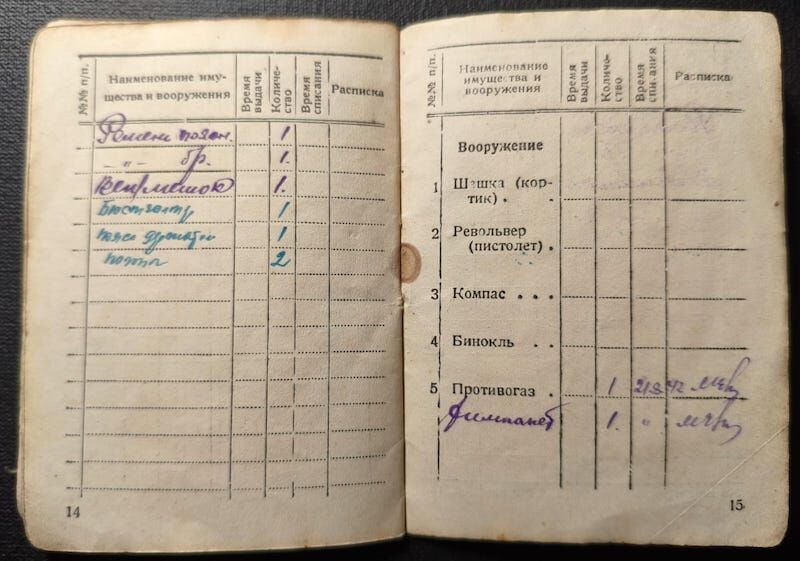 №№ п/п.
Наименование иму-
щества и вооружения
Время
выдачи
Количе-
ство
Время
списания
Расписка
Ремень поясн. 1.
–„– бр. 1.
Вещмешок 1.
Бюстгалтер 1
пояс 1
2
14
№№ п/п.
Наименование
имущества и
вооружения
Время
выдачи
Количе-
ство
Время
списания
Расписка
Вооружение
1 Шашка (кор-
тик) . .
2 Револьвер
(пистолет) .
3 Компас . . .
4 Бинокль . .
5 Противогаз . 1 21.8.42
1. „
15